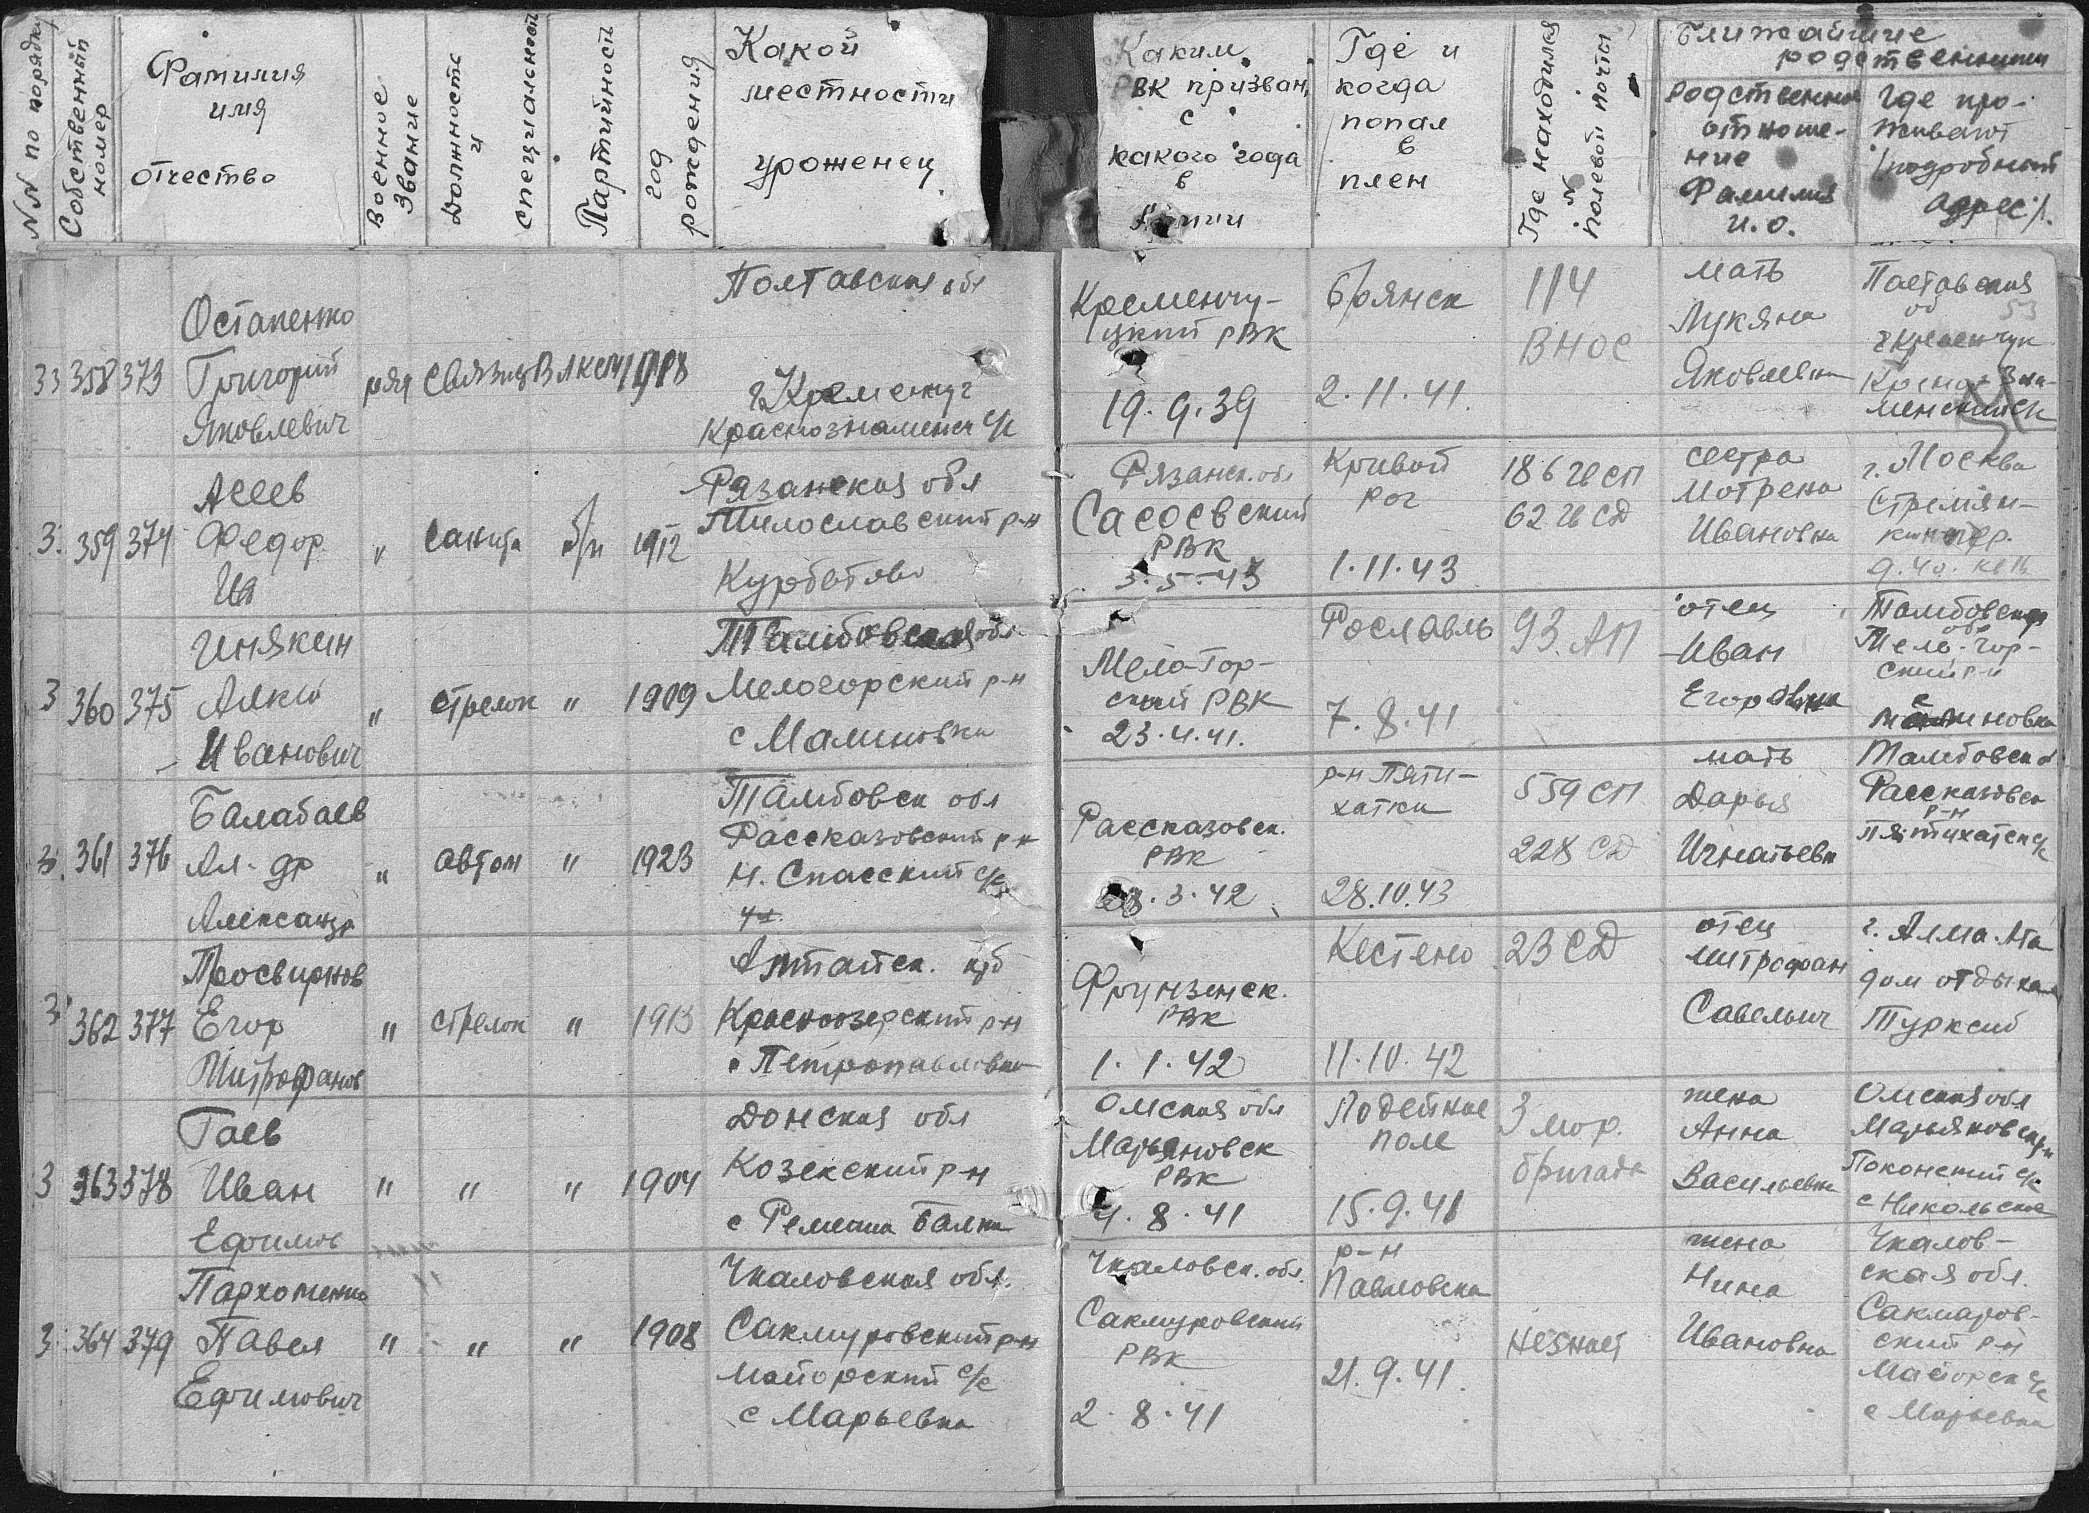 NN по порядку
Собственный номер
Фамилия
имя
отчество
Военное Звание
Должность и специальность
Партийность
год рождения
Какой
местности
уроженец
Каким
РВК призван
с
какого года
в
Армии
Где и
когда
попал
в
плен
Где находился
N полевой почты
Ближайшие
родственники
Родственное
отноше-
ние
Фамилия
и.о.
Где про-
живают
/подробный
адрес/.
Остапенко
Григорий
Яковлевич
358 373
ряд
связист
ВЛКСМ
1918
Полтавская обл
г Кременчуг
Краснознаменск с/с
Кременчу-
цкий РВК
19.9.39
Брянск
2.11.41.
114
ВНОС
мать
Лукяна
Яковлевна
Полтавская
об
г Кременчук
Красно Зна-
менский с/с
Асеев
Федор
Ив
359 374
"
санита
б/п
1912
Рязанская обл
Милославский р-н
Курбатово
Рязанск. обл
Сасовский
РВК
3.5.43
Кривой
рог
1.11.43
186 гв СП
62 гв СД
сестра
Мотрена
Ивановна
г. Москва
Стремян-
Инякин
Иванович
360 375
"
стрелок
"
1909
Тамбовская обл
Мелогорский р-н
с Малиновка
Мело-Гор-
ский РВК
23.4.41.
Рославль
7.8.41
93. АП
отец
Иван
Егорович
Тамбовская
обл
Мело-Гор-
ский р-н
с
Малиновка
Балабаев
Ал-др
Александр
361 376
"
автом
"
1923
Тамбовск обл
Рассказовский р-н
Н. Спасский с/с
Рассказовск.
РВК
28.3.42
р-н Пяти-
хатки
28.10.43
559 СП
228 СД
мать
Дарья
Игнатьевн
Тамбовск о
Рассказовск
р-н
Пятихатск с/с
Просвирнов
Егор
Митрофанов
362 377
"
стрелок
"
1913
Алтайск. кр
Краснозерский р-н
Петропавловка
Фрунзенск.
РВК
1.1.42
Кестено
11.10.42
23 СД
отец
Митрофан
Савельич
г. Алма-Ата
дом отдыха
Турксиб
Гаев
Иван
Ефимов
363 378
"
"
"
1904
Донская обл
Козекский р-н
с Ремена Балка
Омская обл
Марьяновск
РВК
4.8.41
Лодейное
поле
15.9.41
3 мор.
бригада
жена
Анна
Васильевна
Омская обл
Марьяновск р-н
Поконский с/с
с Никольское
Пархоменко
Павел
Ефимович
364 379
"
"
"
1908
Чкаловская обл.
Сакмуровский р-н
Майорский с/с
с Марьевка
Чкаловск. обл.
Сакмуровский
РВК
2.8.41
р-н
Павловска
21.9.41.
незнает
жена
Нина
Ивановна
Чкалов-
ская обл.
Сакмаров-
ский р-н
Майорск с/с
с Марьевка